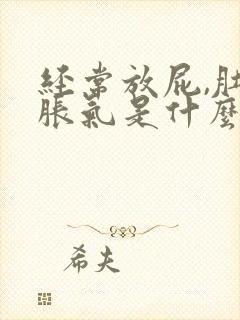 经常放屁,肚
胀氣是什麼
希夫